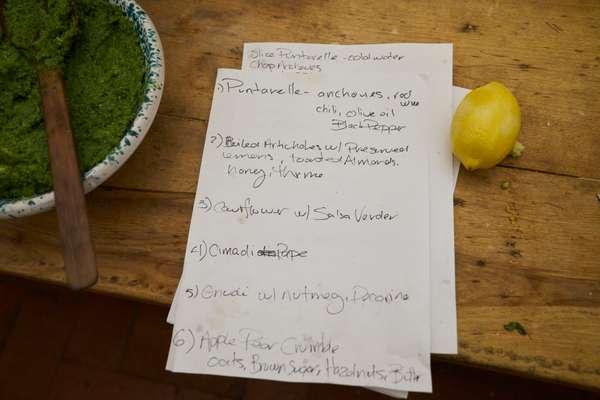 Slice Puntarelle - cold water
Chop Anchoves
1) Puntarelle - anchoves, red wine
chili, olive oil
Black Pepper
2) Boiled Artichokes w/ Preserved
lemons, toasted Almonds.
honey, thyme
3) Cauliflower w/ Salsa Verder
4) Cimadi Rape
5) Gnudi w/ nutmeg, Pecorino
6) Apple Pear Crumble
oats, Brown Sugar, Hazelnuts, Butter